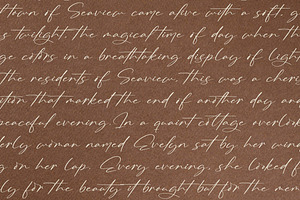 town of Seaview came alive with a soft, g
s twilight, the magical time of day when th
ge colors in a breathtaking display of ligh
the residents of Seaview, this was a cher
tion that marked the end of another day an
peaceful evening. In a quaint cottage overloo
erly woman named Evelyn sat by her wind
g on her lap. Every evening, she looked f
ly for the beauty it brought but for the mem